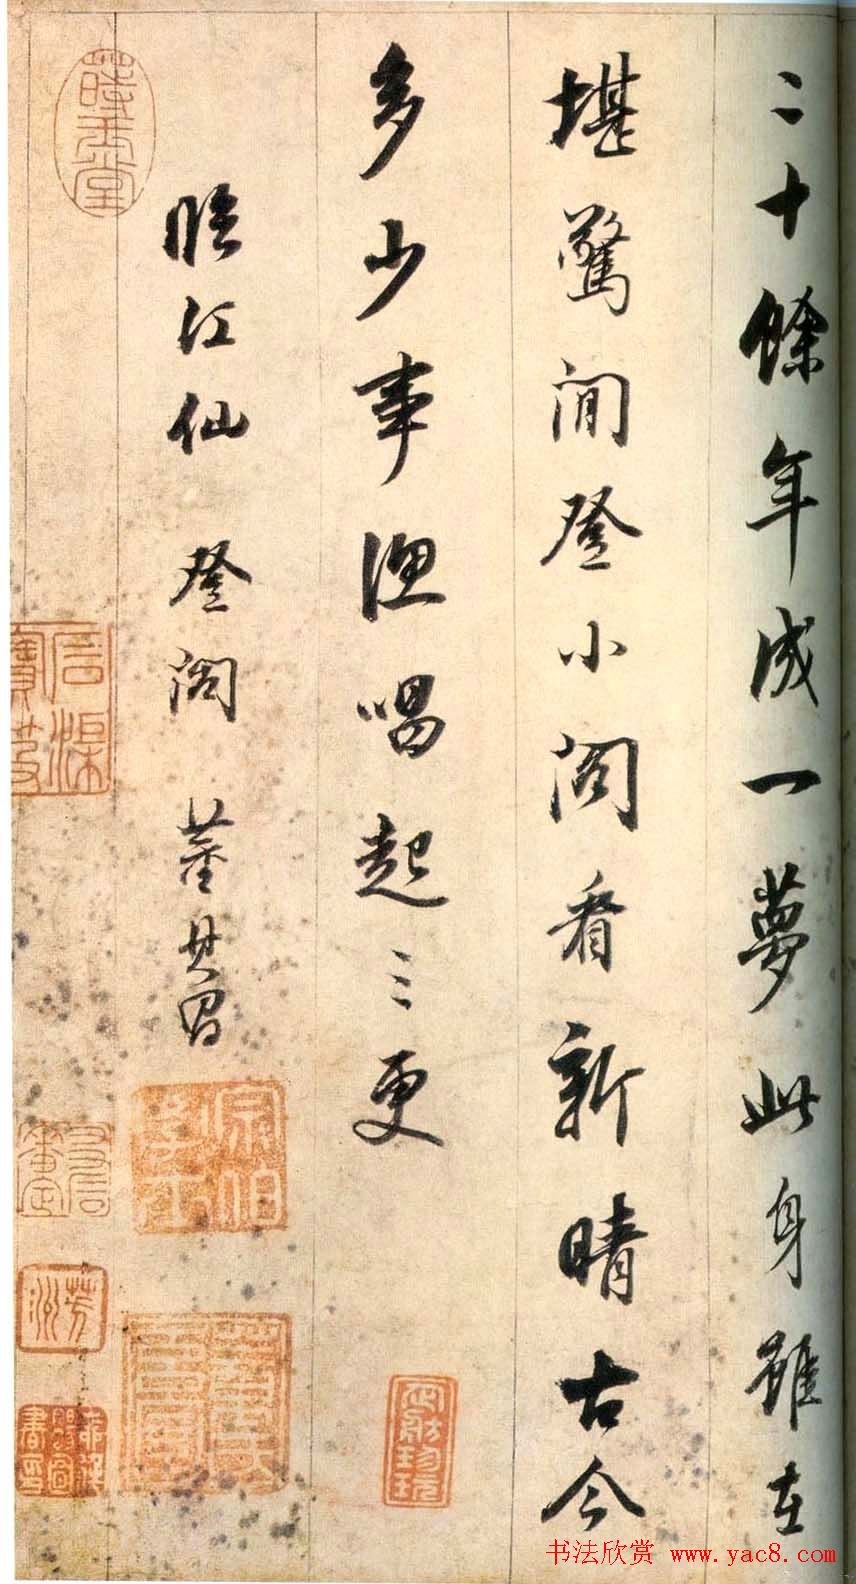 二十餘年成一夢此身雖在
堪驚閒登小閣看新晴古今
多少事漁唱起三更
臨江仙 登閣 董其昌
宗伯學士
書法欣赏 www.yac8.com